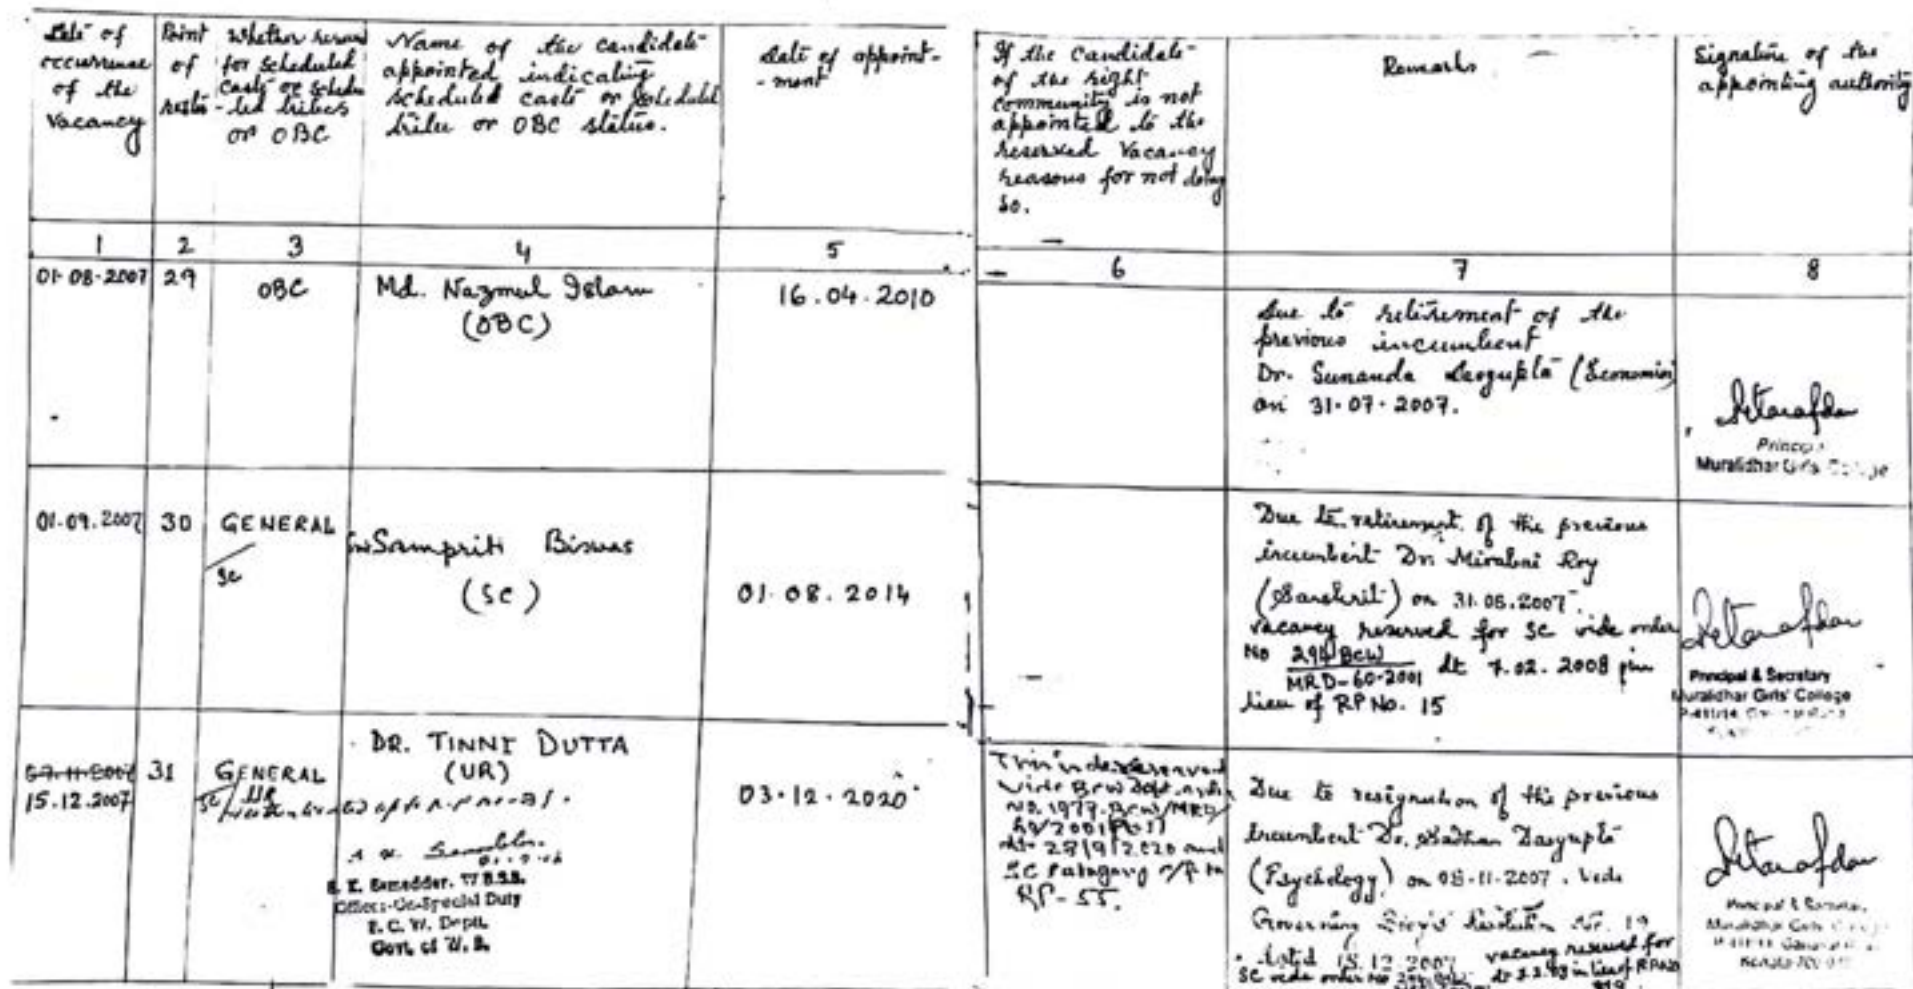 Date of
occurrence
of the
Vacancy
Point
of
Whether
for scheduled
caste or schedu
-led tribes
or OBC
Name of the candidate
appointed indicating
scheduled caste or scheduled
tribe or OBC status.
date of appoint-
-ment
If the candidate
of the right
community is not
appointed to the
reserved Vacancy
reasons for not doing
so.
Remarks
Signature of the
appointing authority
1
2
3
4
5
6
7
8
01-08-2007
29
OBC
Md. Nazmul Islam
(OBC)
16.04.2010
due to retirement of the
previous incumbent
Dr. Sunanda Dasgupta (Economics)
on 31.07.2007.
Principal
Muralidhar Girls' College
01.09.2007
30
GENERAL
SC
Sampriti Biswas
(SC)
01.08.2014
Due to retirement of the previous
incumbent Dr. Mirabai Roy
(Sanskrit) on 31.08.2007
vacancy reserved for SC vide order
No 294 BCW
MRD-60-2001 dt 7.02.2008 in
lieu of RP No. 15
Principal & Secretary
Muralidhar Girls' College
15.12.2007
31
GENERAL
SC/UR
DR. TINNI DUTTA
(UR)
S. K. Samaddar, W.B.S.S.
Officer-On-Special Duty
B. C. W. Deptt.
Govt. of W. B.
03.12.2020
This is dereserved
vide BCW Dept. order
No. 1977-BCW/MRD
dt. 28/9/2020 and
SC
RP-55.
Due to resignation of the previous
incumbent Dr. Sadhan Dasgupta
(Psychology) on 08-11-2007. Vide
Governing Body's Resolution No. 19
dated 15.12.2007 vacancy reserved for
SC vide order No in lieu of RP No
Principal & Secretary
Muralidhar Girls' College